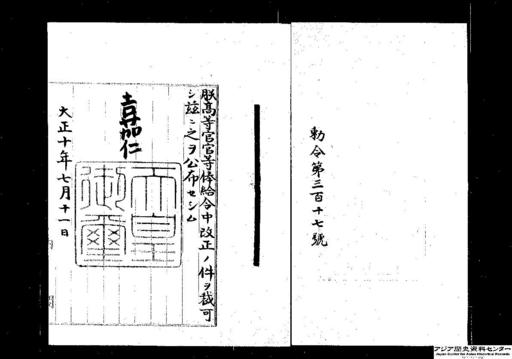 勅令第三百十七號
朕高等官官等俸給令中改正ノ件ヲ裁可
シ茲ニ之ヲ公布セシム
嘉仁
天皇
御璽
大正十年七月十一日
アジア歴史資料センター
Japan Center for Asian Historical Records